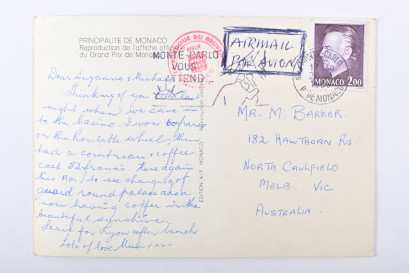 PRINCIPAUTE DE MONACO
Reproduction de l'affiche
du Grand Prix de Monaco
MONTE-CARLO
VOUS
TEND
AIRMAIL
PAR AVION
MONACO 2,00
P. DE MONACO
EDITION A.I.P. MONACO
Dear Suzanne & Michael
Thinking of you
might when we came in
to the casino. I won 60 francs
on the Roulette wheel, then
had a cointreau & coffee
cost 52 francs. Here again
this Avi. to see changing of
guard round palace area
now having coffee in the
beautiful sunshine.
Leave for Lyon after lunch
Lots of love Mum xxx
MR. M. BARKER.
182 HAWTHORN RD
NORTH CAULFIELD
MELB. VIC
AUSTRALIA.